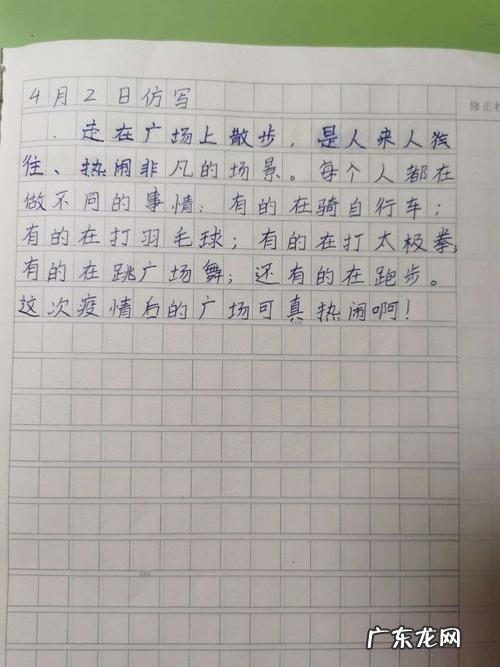 4月2日仿写
走在广场上散步，是人来人往
往、热闹非凡的场景。每个人都在
做不同的事情：有的在骑自行车；
有的在打羽毛球；有的在打太极拳；
有的在跳广场舞；还有的在跑步。
这次疫情后的广场可真热闹啊！
修正栏
广东龙网